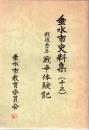 垂水市史料集(十三)
戦後五十年
戦争体験記
垂水市教育委員会